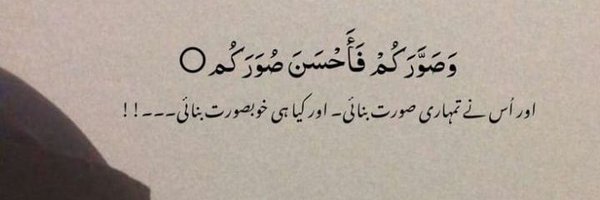 وَصَوَّرَكُمْ فَأَحْسَنَ صُوَرَكُم ○
اور اُس نے تمہاری صورت بنائی۔ اور کیا ہی خوبصورت بنائی۔۔۔!!